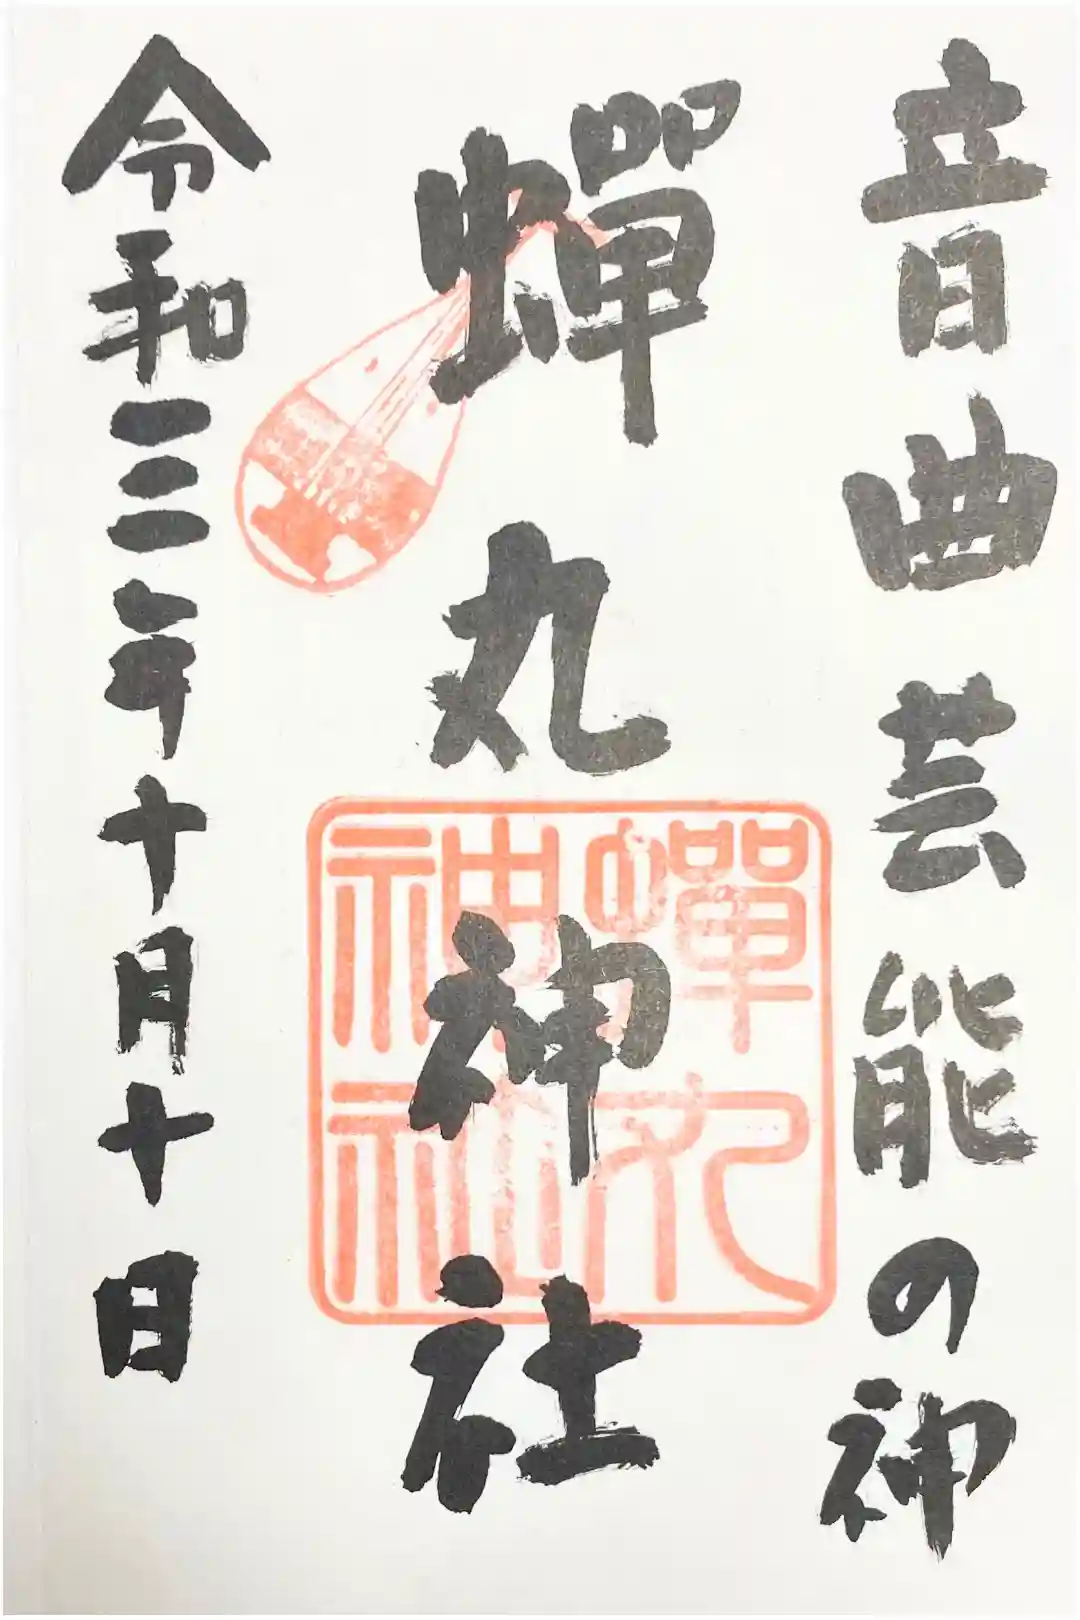 音曲芸能の神
蟬丸神社
令和三年十月十日
蟬丸
神社